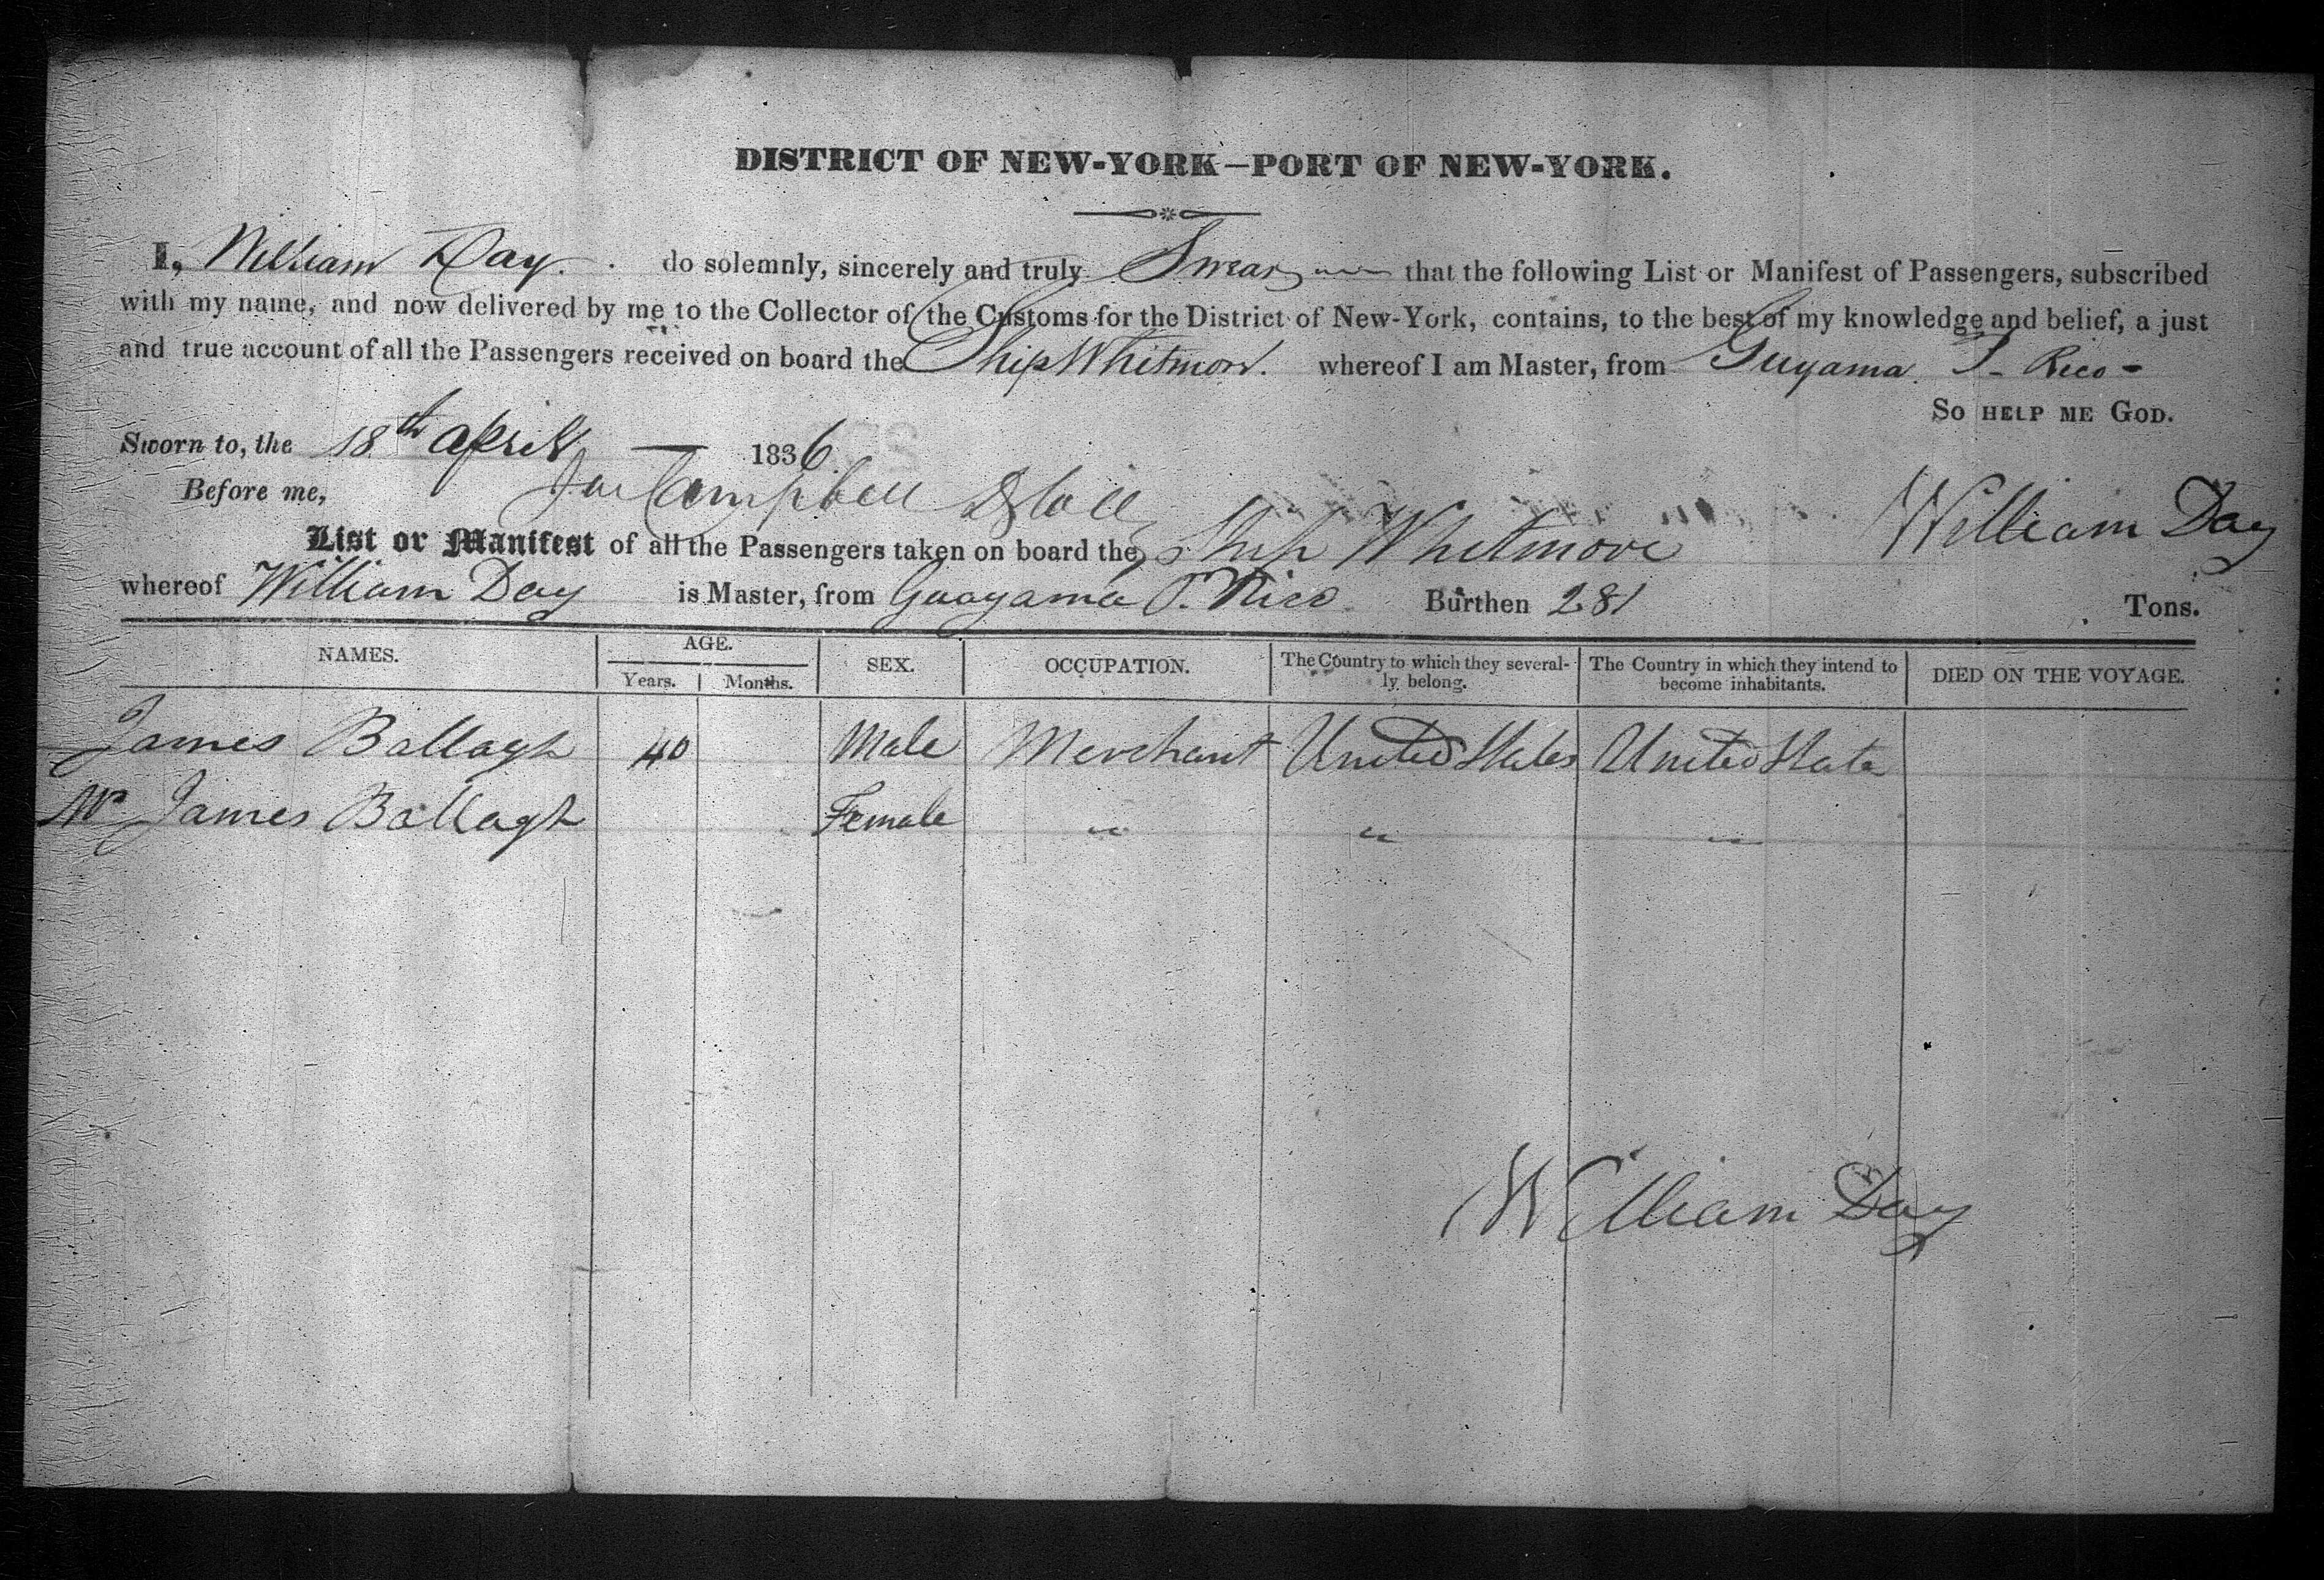 DISTRICT OF NEW-YORK—PORT OF NEW-YORK.
I, William Day. do solemnly, sincerely and truly Swear that the following List or Manifest of Passengers, subscribed
with my name, and now delivered by me to the Collector of the Customs for the District of New-York, contains, to the best of my knowledge and belief, a just
and true account of all the Passengers received on board the Ship Whitmore. whereof I am Master, from Guyama P- Rico-
So HELP ME GOD.
Sworn to, the 18th april — 1836
Before me, Campbell
William Day
List or Manifest of all the Passengers taken on board the Ship Whitmore
whereof William Day is Master, from Guayama P. Rico Burthen 281 Tons.
NAMES. AGE. SEX. OCCUPATION. The Country to which they several- The Country in which they intend to DIED ON THE VOYAGE.
Years. Months. ly belong. become inhabitants.
James Ballagh 40 Male Merchant United States United State
James Ballagh Female " " "
William Day